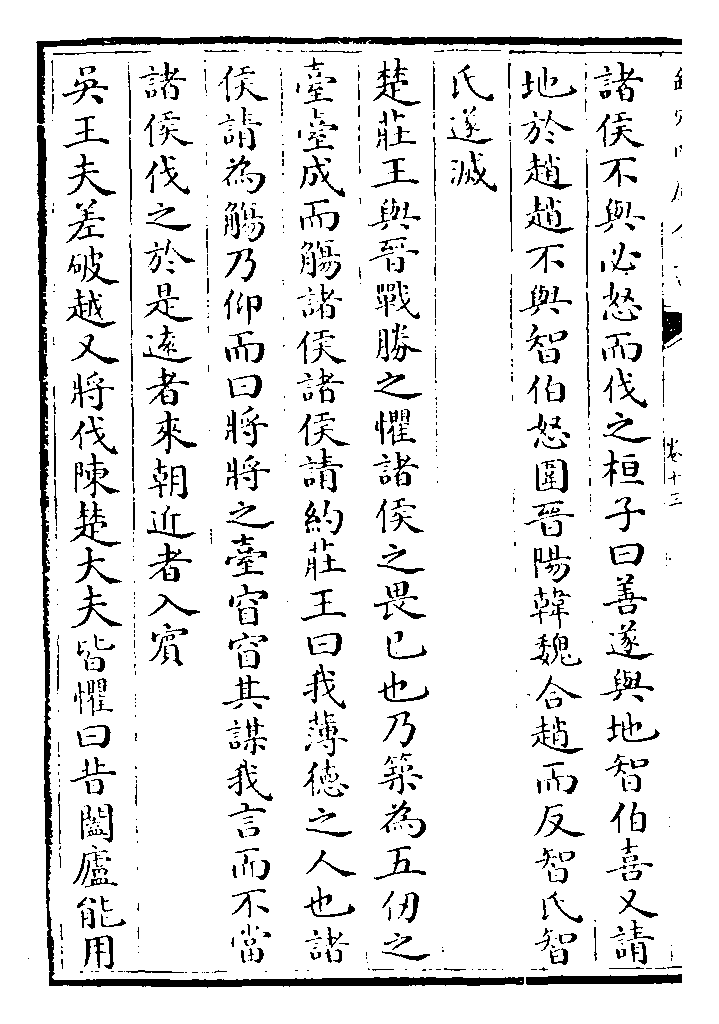 卷十三
諸侯不與必怒而伐之桓子曰善遂與地智伯喜又請
地於趙趙不與智伯怒圍晉陽韓魏合趙而反智氏智
氏遂滅
楚莊王與晉戰勝之懼諸侯之畏已也乃築為五仞之
臺臺成而觴諸侯諸侯請約莊王曰我薄德之人也諸
侯請為觴乃仰而曰將將之臺窅窅其謀我言而不當
諸侯伐之於是遠者來朝近者入賓
吳王夫差破越又將伐陳楚大夫皆懼曰昔闔廬能用